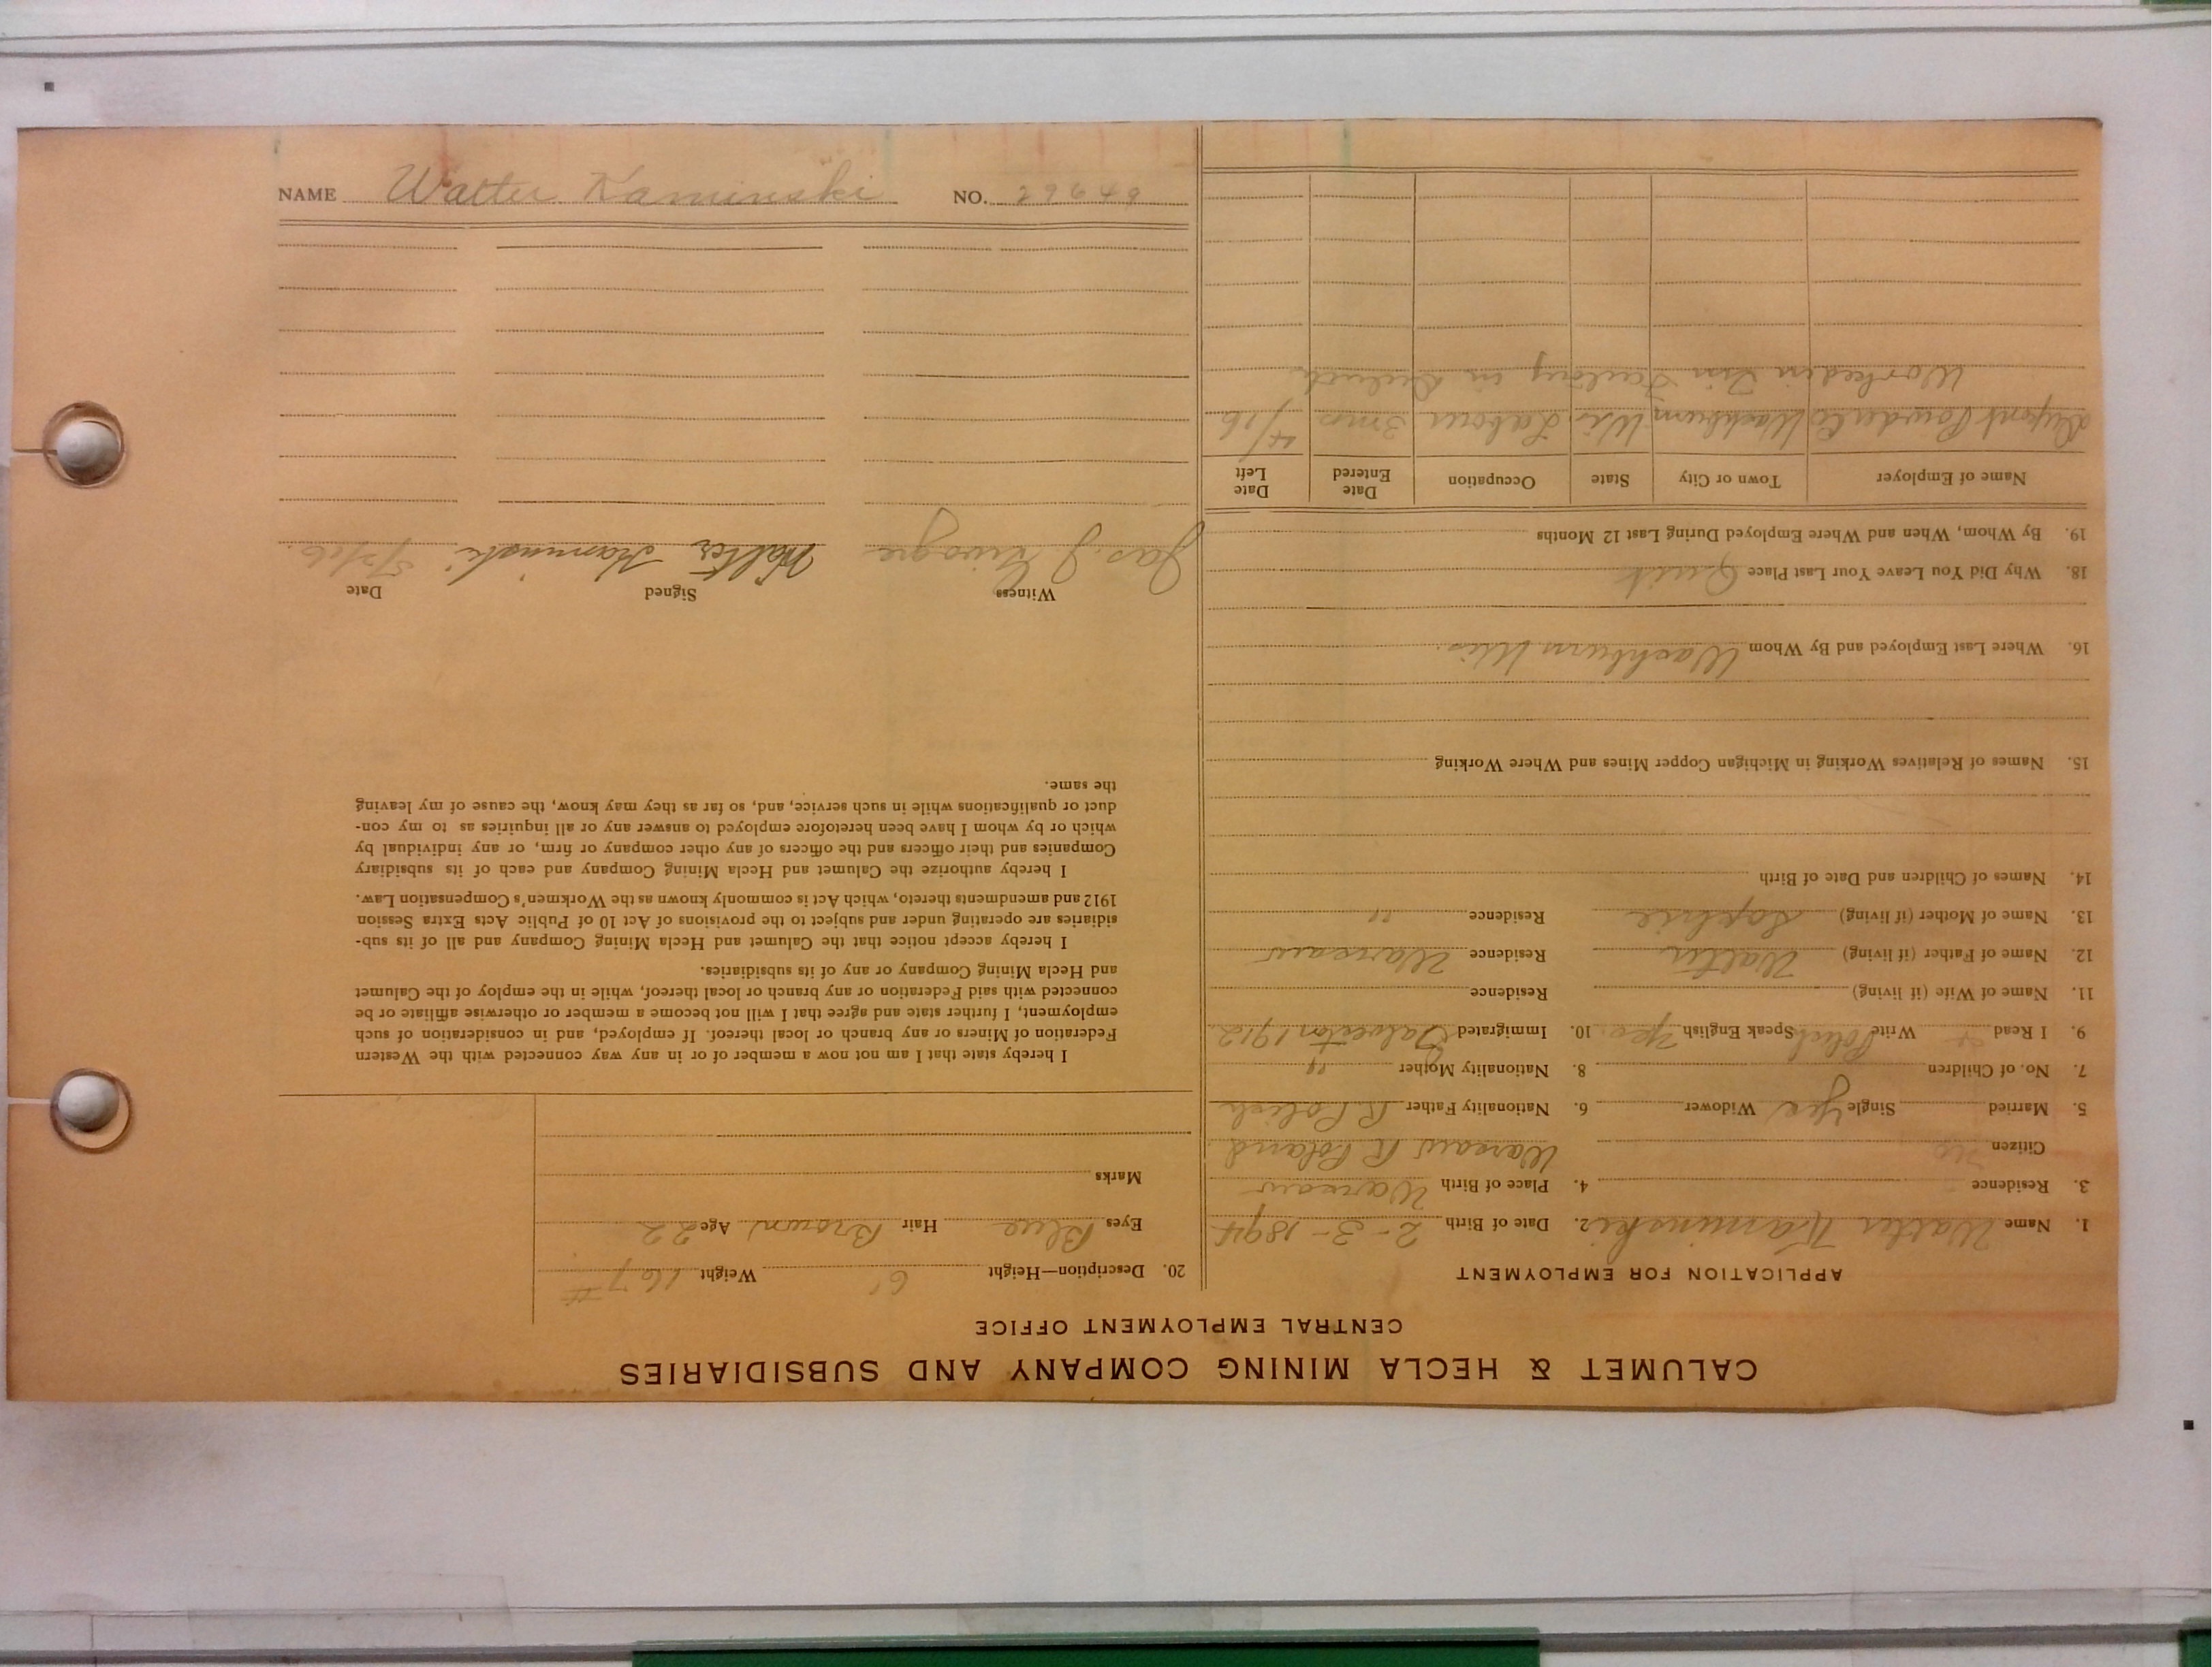 CALUMET & HECLA MINING COMPANY AND SUBSIDIARIES
CENTRAL EMPLOYMENT OFFICE
APPLICATION FOR EMPLOYMENT
1. Name Walter Kaminski 2. Date of Birth 2-3-1894
3. Residence 4. Place of Birth Warsaw
Citizen no Warsaw R Poland
5. Married Single Yes Widower 6. Nationality Father R Polish
7. No. of Children 8. Nationality Mother "
9. I Read Write Polish Speak English Yes. 10. Immigrated Galveston 1912
11. Name of Wife (if living) Residence
12. Name of Father (if living) Walter Residence Warsaw
13. Name of Mother (if living) Sophie Residence "
14. Names of Children and Date of Birth
15. Names of Relatives Working in Michigan Copper Mines and Where Working
16. Where Last Employed and By Whom Washburn Wis.
18. Why Did You Leave Your Last Place Quit
19. By Whom, When and Where Employed During Last 12 Months
Name of Employer Town or City State Occupation Date Entered Date Left
Dupont Powder Co Washburn Wis. Laborer 3 mos 4/16
Worked in Tin Factory in
20. Description—Height 6' Weight 167 #
Eyes Blue Hair Brown Age 22
Marks
I hereby state that I am not now a member of or in any way connected with the Western
Federation of Miners or any branch or local thereof. If employed, and in consideration of such
employment, I further state and agree that I will not become a member or otherwise affiliate or be
connected with said Federation or any branch or local thereof, while in the employ of the Calumet
and Hecla Mining Company or any of its subsidiaries.
I hereby accept notice that the Calumet and Hecla Mining Company and all of its sub-
sidiaries are operating under and subject to the provisions of Act 10 of Public Acts Extra Session
1912 and amendments thereto, which Act is commonly known as the Workmen's Compensation Law.
I hereby authorize the Calumet and Hecla Mining Company and each of its subsidiary
Companies and their officers and the officers of any other company or firm, or any individual by
which or by whom I have been heretofore employed to answer any or all inquiries as to my con-
duct or qualifications while in such service, and, so far as they may know, the cause of my leaving
the same.
Witness Signed Date
Jas. J. Walter Kaminski
NAME Walter Kaminski NO. 29649